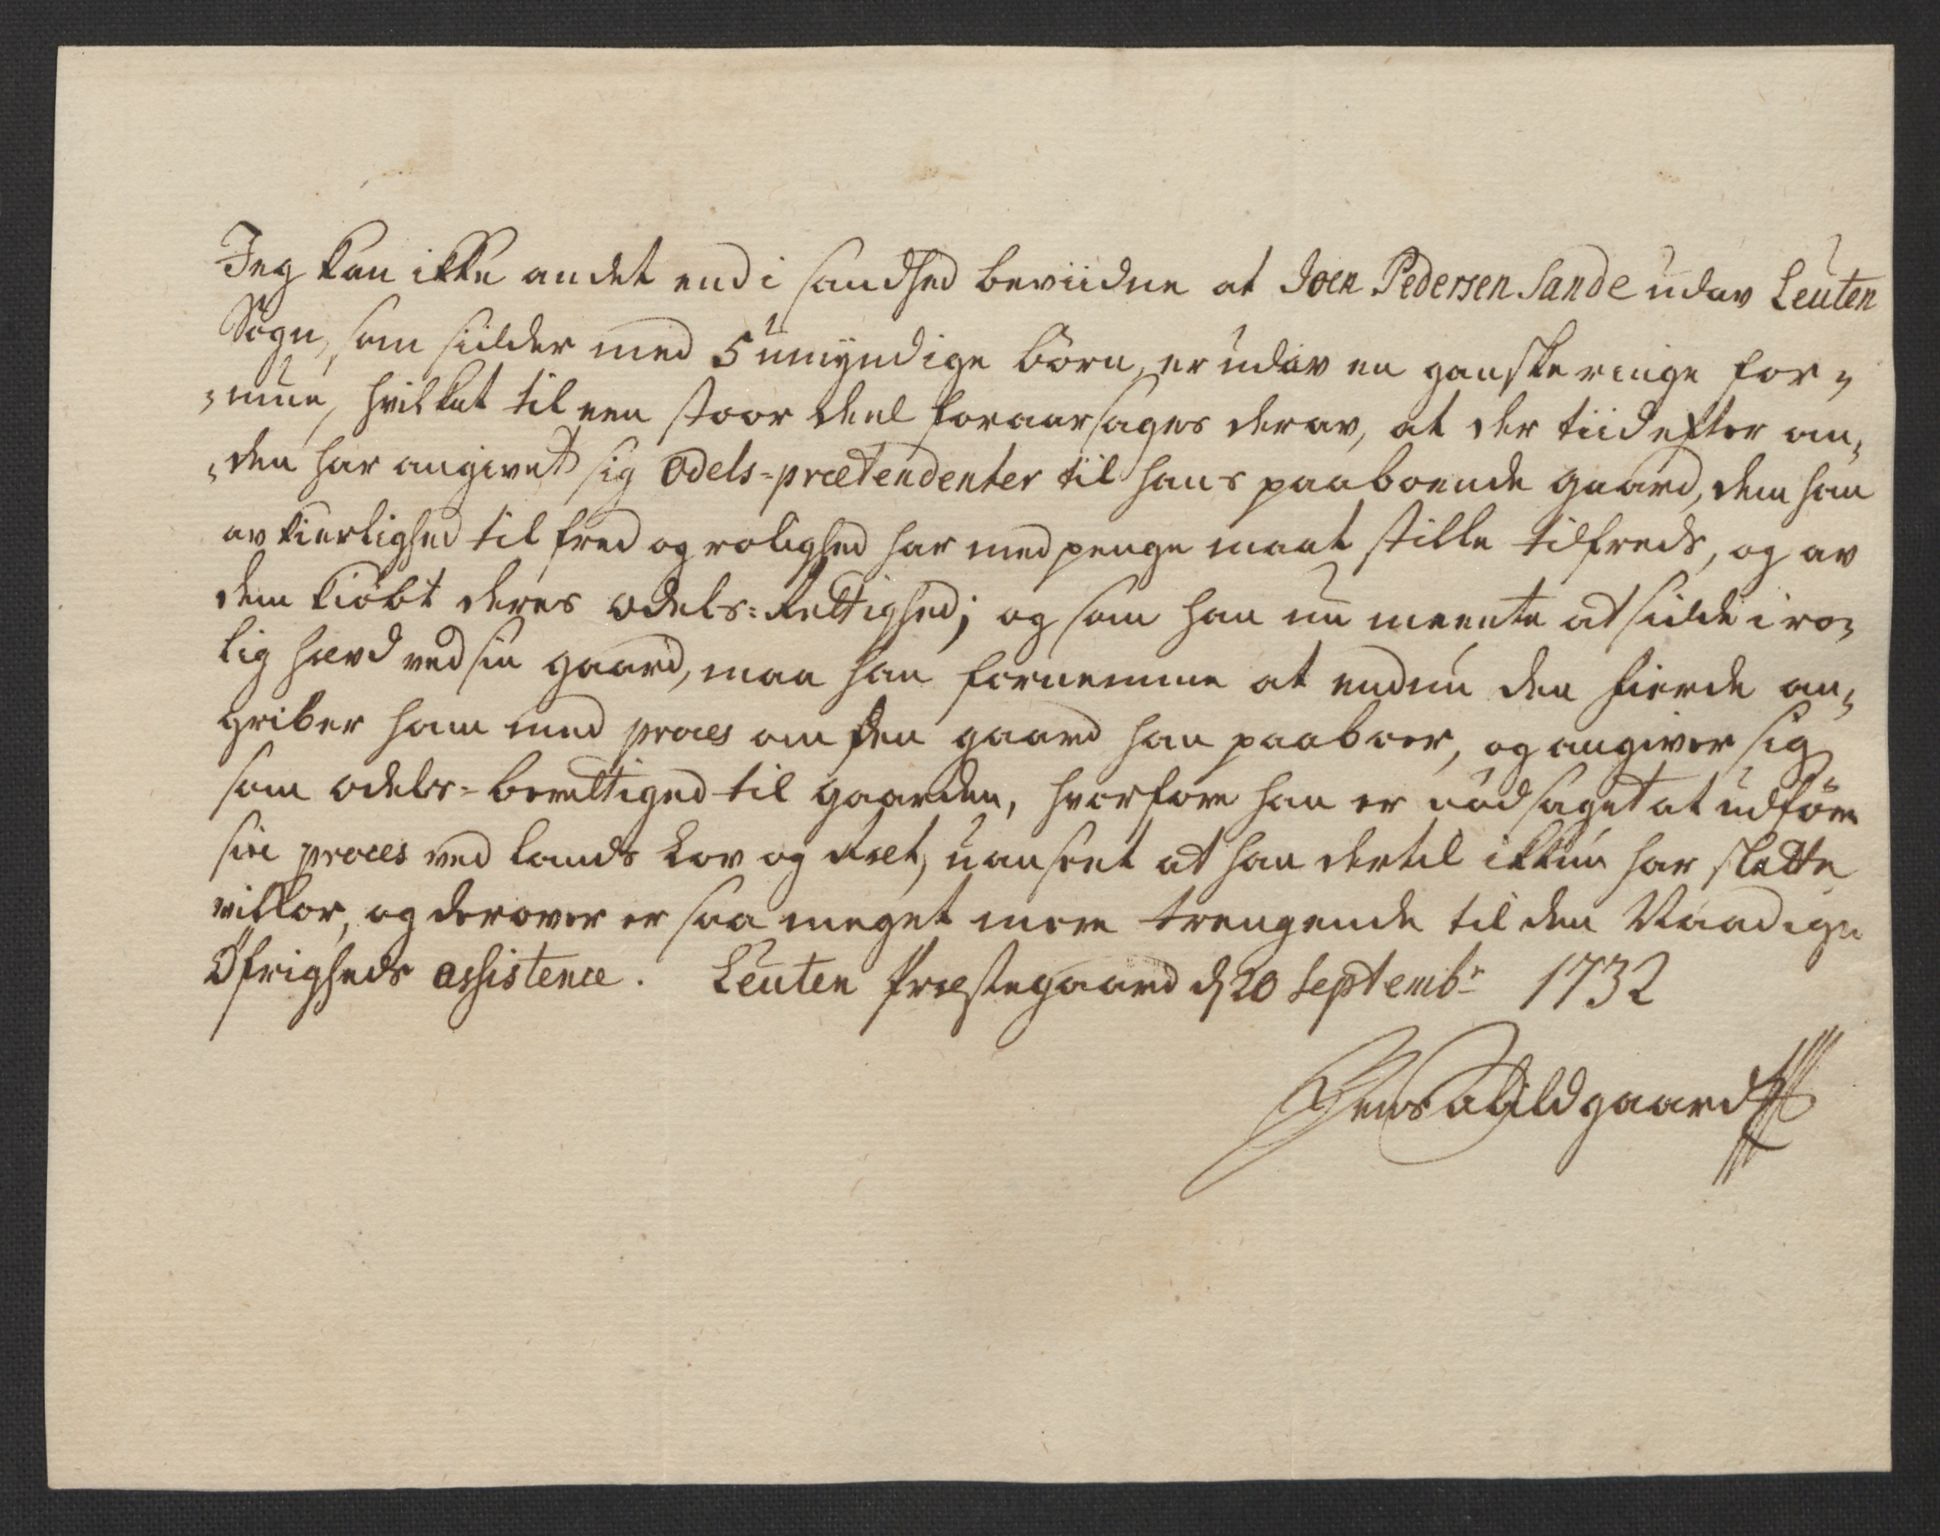 Jeg kan ikke andet end i sandhed beviidne at Joen Pedersen Sande udav Leuten
Sogn, som sidder med 5 umyndige börn, er udav en ganske ringe for-
-mue, hvilket til een stoor deel foraarsages derav, at der tiid efter an-
-den har angivet sig Odels-prætendenter til hans paaboende gaard, dem han
av kierlighed til fred og rolighed har med penge maat stille tilfreds, og av
dem kiöbt deres Odels-Rettighed; og som han nu meente at sidde i ro-
lig hævd ved sin gaard, maa han fornemme at endnu den fierde an-
griber ham med proces om den gaard han paaboer, og angiver sig
som odels-berettiged til gaarden, hvorfore han er nödsaget at udföre
sin proces ved Lands Lov og Ræt, uanseet at han dertil ikkun har slette
vilkor, og derover er saa meget mere trengende til den Naadige
Öfrigheds assistence. Leuten Præstegaard d 20 Septembr 1732
Jens Wildgaard